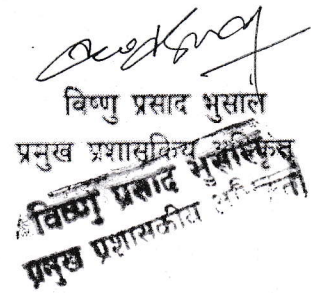 विष्णु प्रसाद भुसाल
प्रमुख प्रशासकिय
विष्णु प्रसाद भुसाल
प्रमुख प्रशासकीय